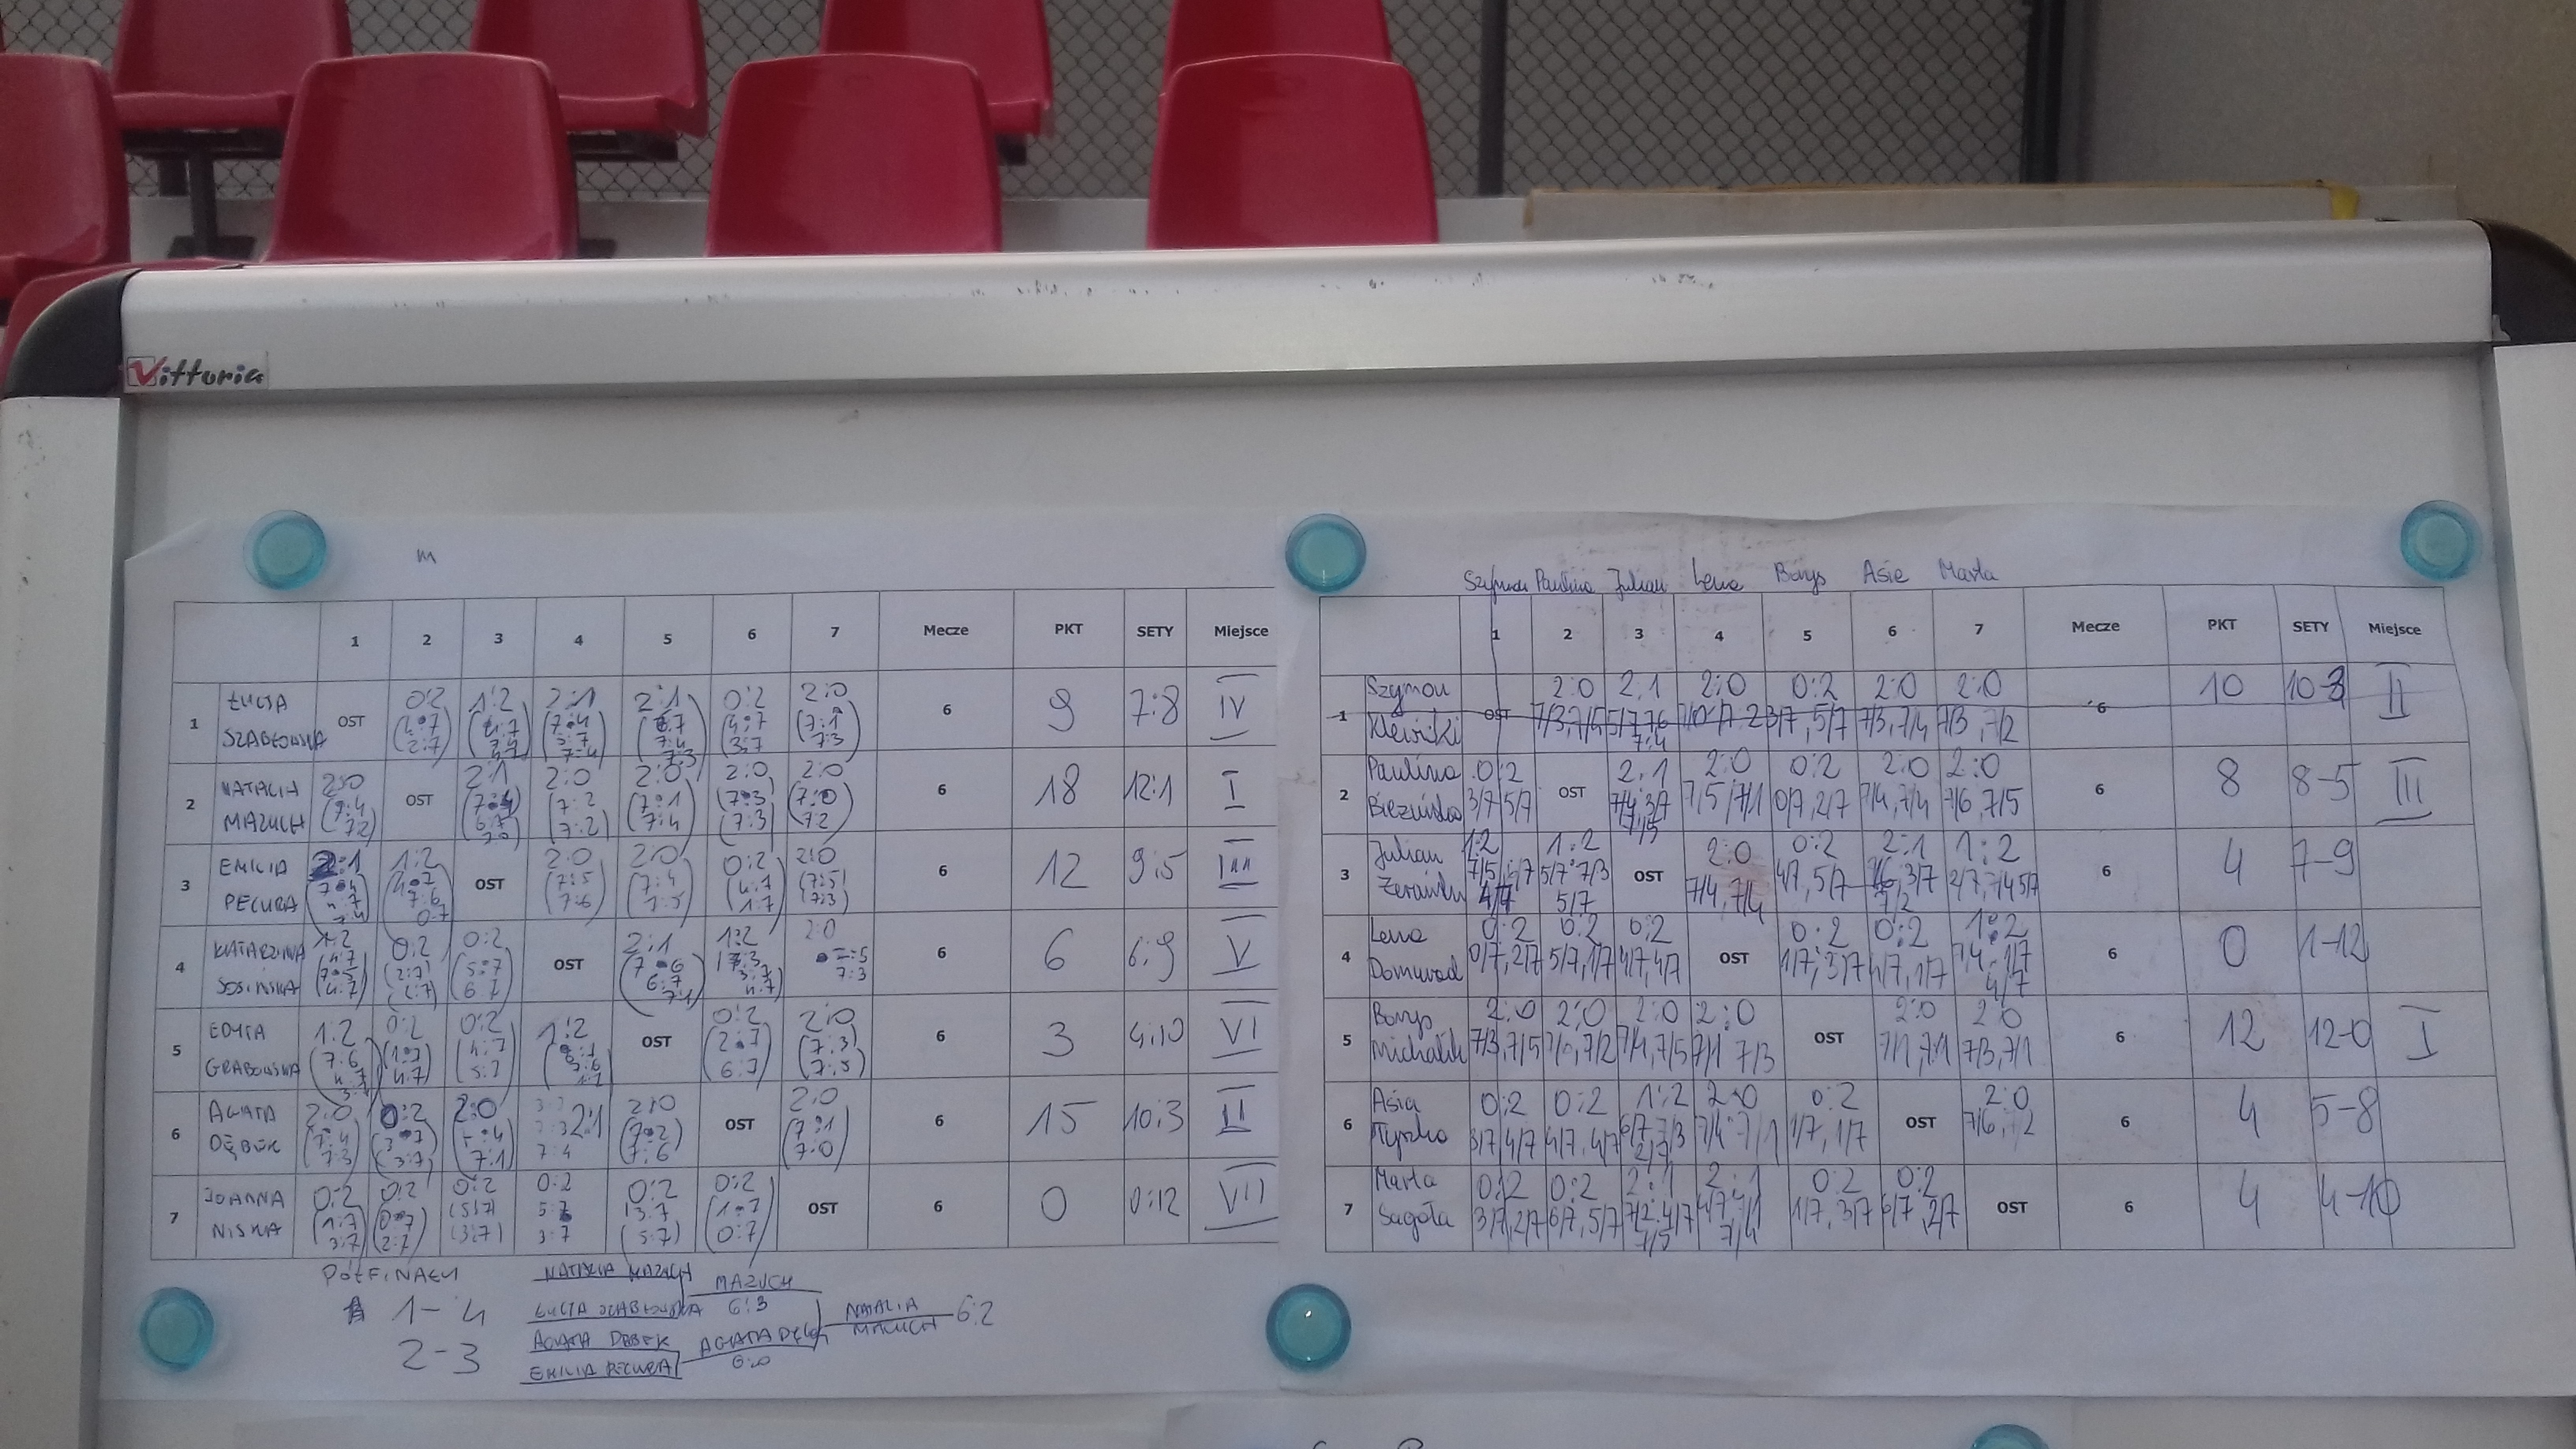 Vittoria
m
1 2 3 4 5 6 7 Mecze PKT SETY Miejsce
1 ŁUCJA SZABŁOWSKA OST 0:2 1:2 2:1 2:1 0:2 2:0 6 9 7:8 IV
(4:7 2:7) (7:4 5:7 7:4) (4:7 3:7) (7:1 7:3)
2 NATALIA MAZUCH 2:0 OST 2:1 2:0 2:0 2:0 2:0 6 18 12:1 I
(7:4 7:2) (7:2 7:2) (7:1 7:4) (7:3 7:3) (7:0 7:2)
3 EMILIA PECURA 2:1 1:2 OST 2:0 2:0 0:2 2:0 6 12 9:5 III
(7:4 4:7 7:4) (4:7 7:6 0:7) (7:5 7:6) (4:7 1:7) (7:5 7:3)
4 KATARZYNA SOSIŃSKA 1:2 0:2 0:2 OST 2:1 1:2 2:0 6 6 6:9 V
(4:7 7:5 4:7) (2:7) (2:7) (5:7 6:7) (7:6 6:7 7:1) (7:3 3:7 4:7) 7:5 7:3
5 EDYTA GRABOWSKA 1:2 0:2 0:2 1:2 OST 0:2 2:0 6 3 4:10 VI
(7:6 4:7 3:7) (1:7 4:7) (4:7 5:7) (2:7 6:7) (7:3 7:5)
6 AGATA DĘBEK 2:0 0:2 2:0 2:1 2:0 OST 2:0 6 15 10:3 II
(7:4 7:3) (3:7 3:7) 7:1) 7:4 (7:2 7:6) (7:1 7:0)
7 JOANNA NISKA 0:2 0:2 0:2 0:2 0:2 0:2 OST 6 0 0:12 VII
(1:7 3:7) (0:7 2:7) (5:7) (3:7) 5:7 3:7 (3:7 (5:7) (1:7 0:7)
PÓŁFINAŁY
1-4
2-3
NATALIA MAZUCH
ŁUCJA SZABŁOWSKA
MAZUCH
6:3
AGATA DĘBEK
EMILIA PECURA
AGATA DĘBEK
6:0
NATALIA MAZUCH 6:2
Szymon Paulina Julian Lena Borys Asia Marta
1 2 3 4 5 6 7 Mecze PKT SETY Miejsce
1 Szymon OST 2:0 2:1 2:0 0:2 2:0 2:0 6 10 10-3 II
7/3, 7/5 5/7 7/6 7/4 3/7, 5/7 7/3, 7/4 7/3, 7/2
2 Paulina 0:2 OST 2:1 2:0 0:2 2:0 2:0 6 8 8-5 III
3/7 5/7 7/4 3/7 7/5 7/5 7/1 0/7, 2/7 7/4, 7/4 7/6, 7/5
3 Julian 1:2 1:2 OST 2:0 0:2 2:1 1:2 6 4 7-9
5/7 7/3 5/7 7/4, 7/4 4/7, 5/7 2/7, 7/4 5/7
4 Lena 0:2 0:2 0:2 OST 0:2 0:2 1:2 6 0 1-12
0/7, 2/7 5/7, 1/7 4/7, 4/7 1/7, 3/7 4/7, 1/7 7/4, 1/7 4/7
5 Borys Michalik 2:0 2:0 2:0 2:0 OST 2:0 2:0 6 12 12-0 I
7/3, 7/5 7/0, 7/2 7/4, 7/5 7/1 7/3 7/1, 7/1 7/3, 7/1
6 Asia Tyszko 0:2 0:2 1:2 2:0 0:2 OST 2:0 6 4 5-8
3/7 4/7 4/7, 4/7 6/7, 7/3 2/7 7/4 7/1 1/7, 1/7 7/6, 7/2
7 Marta Sagoła 0:2 0:2 2:1 2:1 0:2 0:2 OST 6 4 4-10
3/7, 2/7 6/7, 5/7 7/2 4/7 7/5 4/7 7/1 7/4 1/7, 3/7 6/7, 2/7